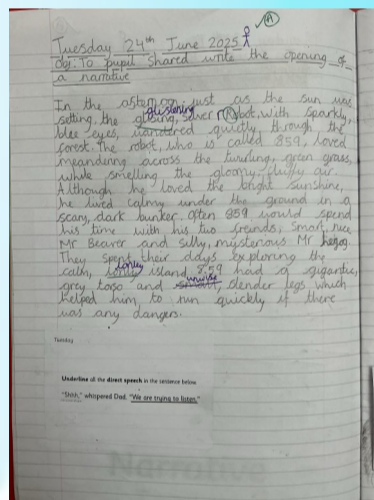 A
Tuesday 24th June 2025
Obj: To pupil shared write the opening of
a narrative
In the afternoon, just as the sun was
glistening
setting, the glowing, silver Robot, with sparkly,
blee eyes, wandered quietly through the
forest. The robot, who is called 859, loved
meandering across the twirling, green grass,
while smelling the gloomy, fluffy air.
Although he loved the bright sunshine,
he lived calmy under the ground in a
scary, dark bunker. Often 859 would spend
his time with his two freinds, smart, nice
Mr Beaver and silly, mysterous Mr hegog.
They spent their days exploring the
lonley
calm, island. 859 had a gigantic,
unwise
grey toso and slender legs which
helped him, to run quickly if there
was any dangers.
Tuesday
Underline all the direct speech in the sentence below.
"Shhh," whispered Dad. "We are trying to listen."
Narrative